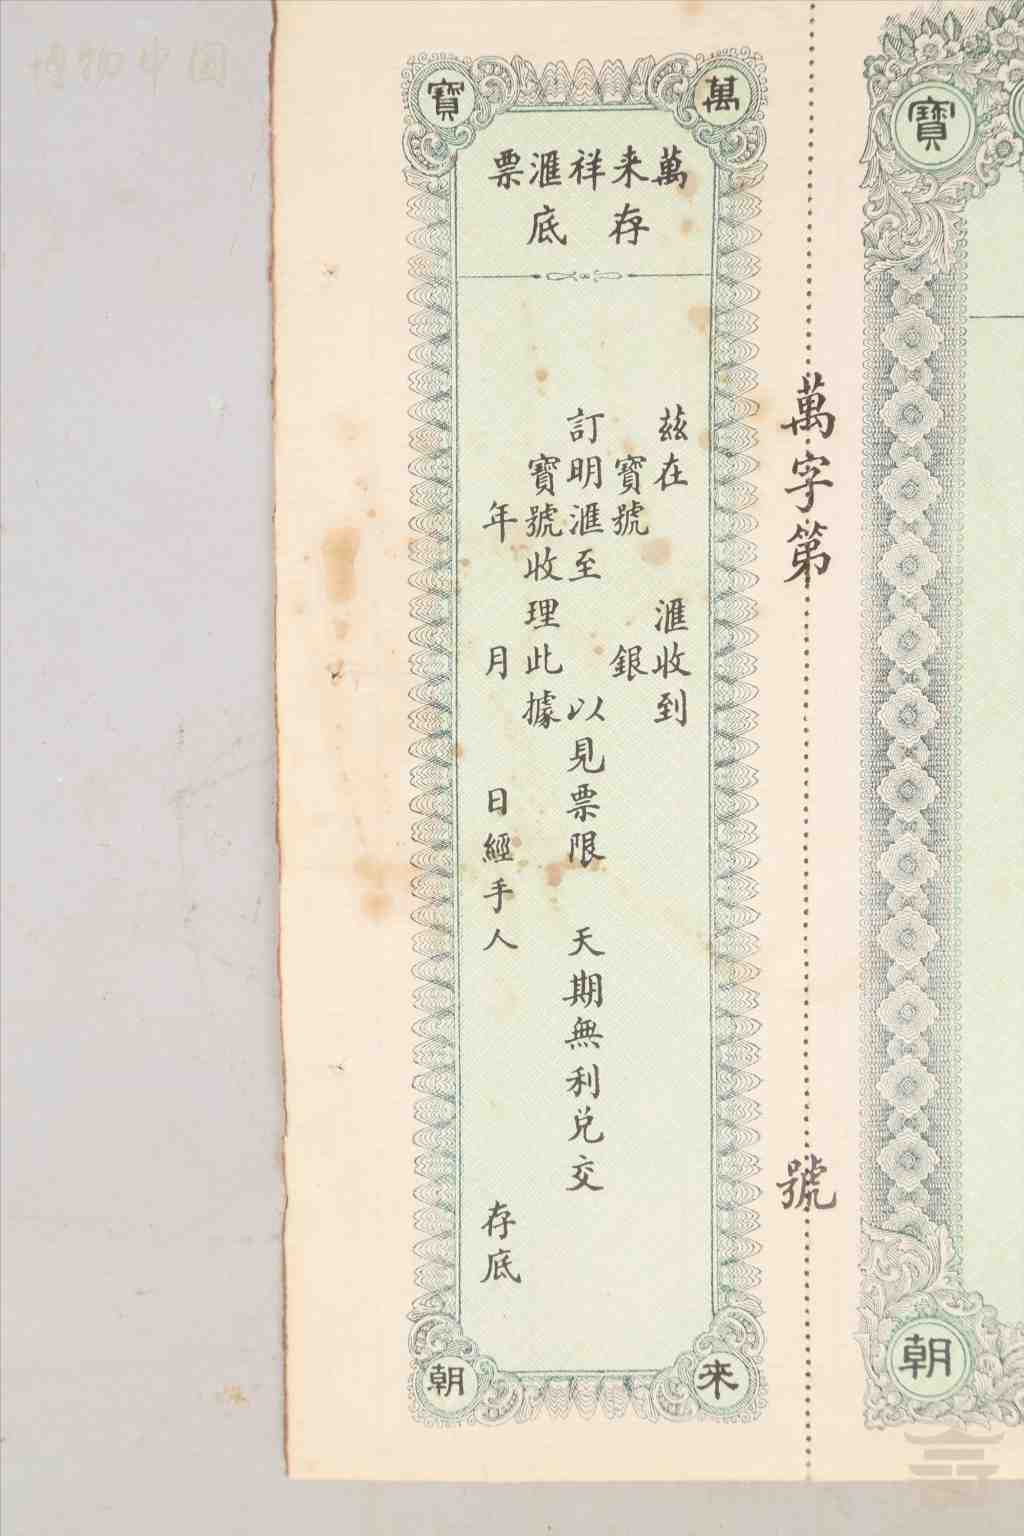 博物中国
萬
寶
來
朝
萬来祥滙票
存底
茲在 滙收到
寶號 銀
訂明滙至 以見票限 天期無利兑交
寶號收理此據
年 月 日經手人 存底
萬字第 號
寶
朝